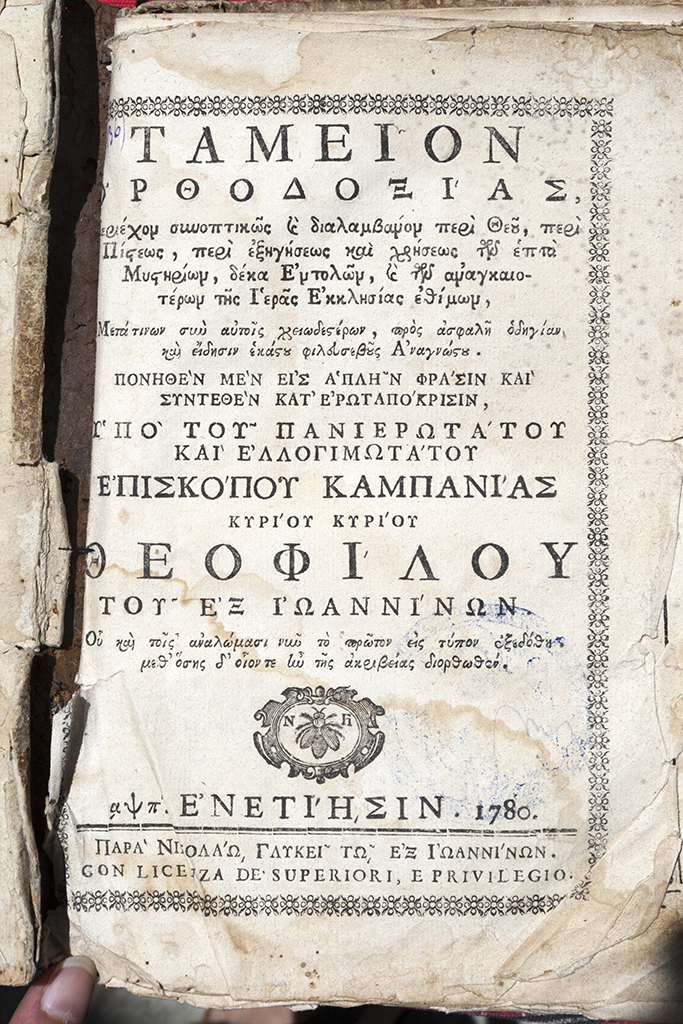 ΤΑΜΕΙ͂ΟΝ
ὈΡΘΟΔΟΞΊΑΣ,
περιέχον συνοπτικῶς & διαλαμβανον περὶ Θεοῦ, περὶ
Πίστεως, περὶ ἐξηγήσεως καὶ χρήσεως τῶν ἑπτὰ
Μυστηρίων, δέκα Ἐντολῶν, & τῶν ἀναγκαιο-
τέρων τῆς Ἱερᾶς Ἐκκλησίας ἐθίμων,
Μετά τινων συν αὐτοῖς χρειωδεστέρων, πρὸς ἀσφαλῆ ὁδηγίαν,
καὶ εἴδησιν ἑκάστου φιλευσεβοῦς Ἀναγνώστου.
ΠΟΝΗΘῈΝ ΜῈΝ ΕἸΣ ἉΠΛΗ͂Ν ΦΡΆΣΙΝ ΚΑῚ
ΣΥΝΤΕΘῈΝ ΚΑΤ' ἘΡΩΤΑΠΌΚΡΙΣΙΝ,
ὙΠῸ ΤΟΥ͂ ΠΑΝΙΕΡΩΤΆΤΟΥ
ΚΑῚ ἘΛΛΟΓΙΜΩΤΆΤΟΥ
ἘΠΙΣΚΌΠΟΥ ΚΑΜΠΑΝΊΑΣ
ΚΥΡΊΟΥ ΚΥΡΊΟΥ
ΘΕΟΦΊΛΟΥ
ΤΟΥ͂ ἘΞ ἸΩΑΝΝΊΝΩΝ.
Οὗ καὶ τοῖς ἀναλώμασι νῦν τὸ πρῶτον εἰς τύπον ἐξεδόθη
μεθ' ὅσης δ' οἷόντε ἦν τῆς ἀκριβείας διορθωθέν.
Ν Η
αψπ. ἘΝΕΤΊΗΣΙΝ. 1780.
ΠΑΡᾺ ΝΙΚΟΛΆΩ, ΓΛΥΚΕΙ͂ ΤΩ͂, ἘΞ ἸΩΑΝΝΊΝΩΝ.
CON LICENZA DE' SUPERIORI, E PRIVILEGIO.